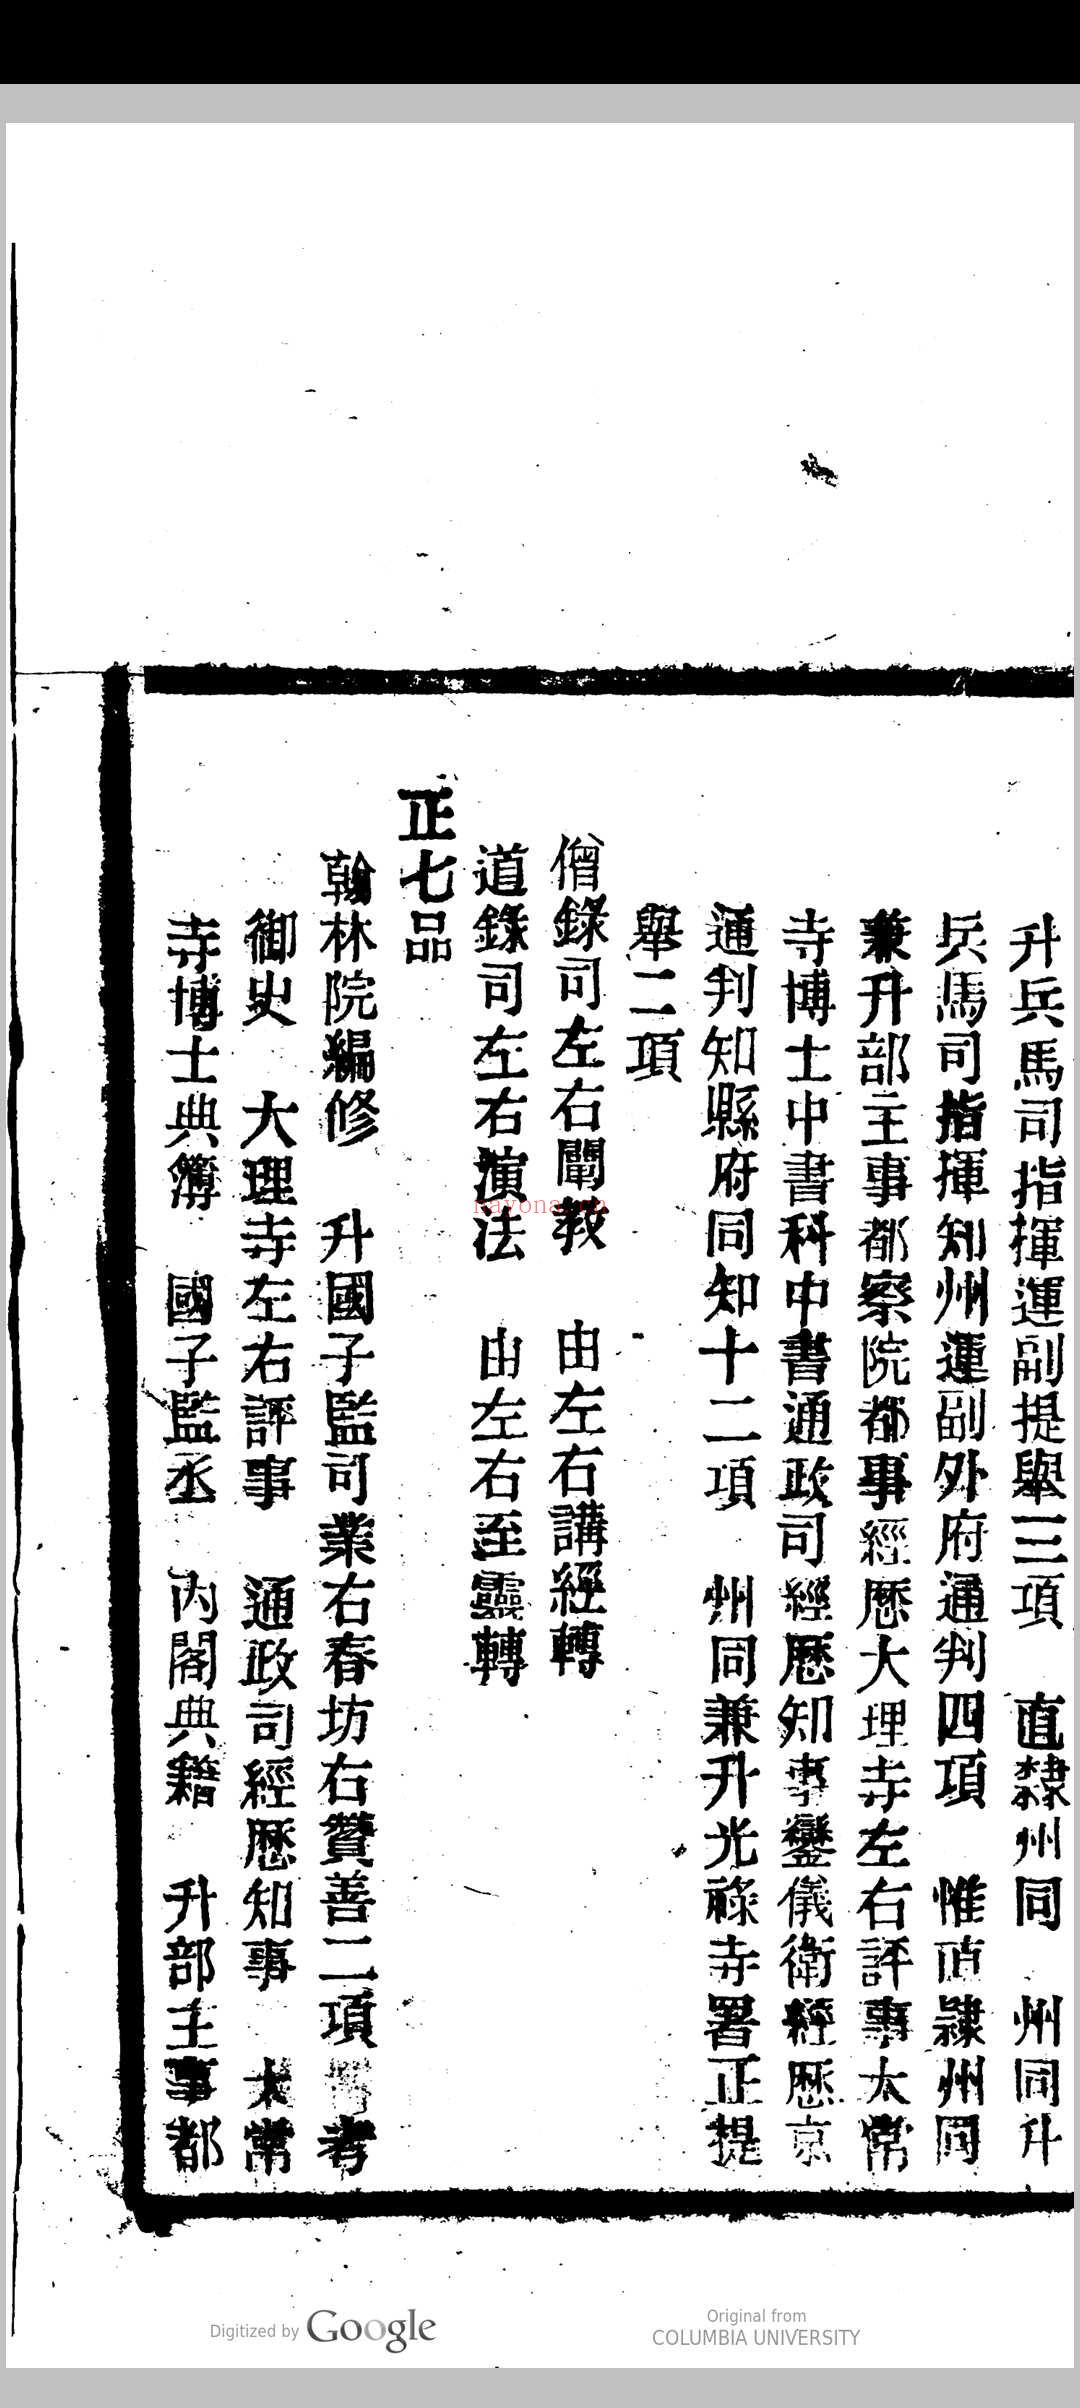 升兵馬司指揮運副提舉三項　直隸州同　州同升
兵馬司指揮知州運副外府通判四項　惟直隸州同
兼升部主事都察院都事經歷大理寺左右評事太常
寺博士中書科中書通政司經歷知事鑾儀衛經歷京
通判知縣府同知十二項　州同兼升光祿寺署正提
舉二項
僧錄司左右闡教　由左右講經轉
道錄司左右演法　由左右至靈轉
正七品
翰林院編修　升國子監司業右春坊右贊善二項　考
御史　大理寺左右評事　通政司經歷知事　太常
寺博士典簿　國子監丞　內閣典籍　升部主事都
nayona.cn
Digitized by Google
Original from
COLUMBIA UNIVERSITY